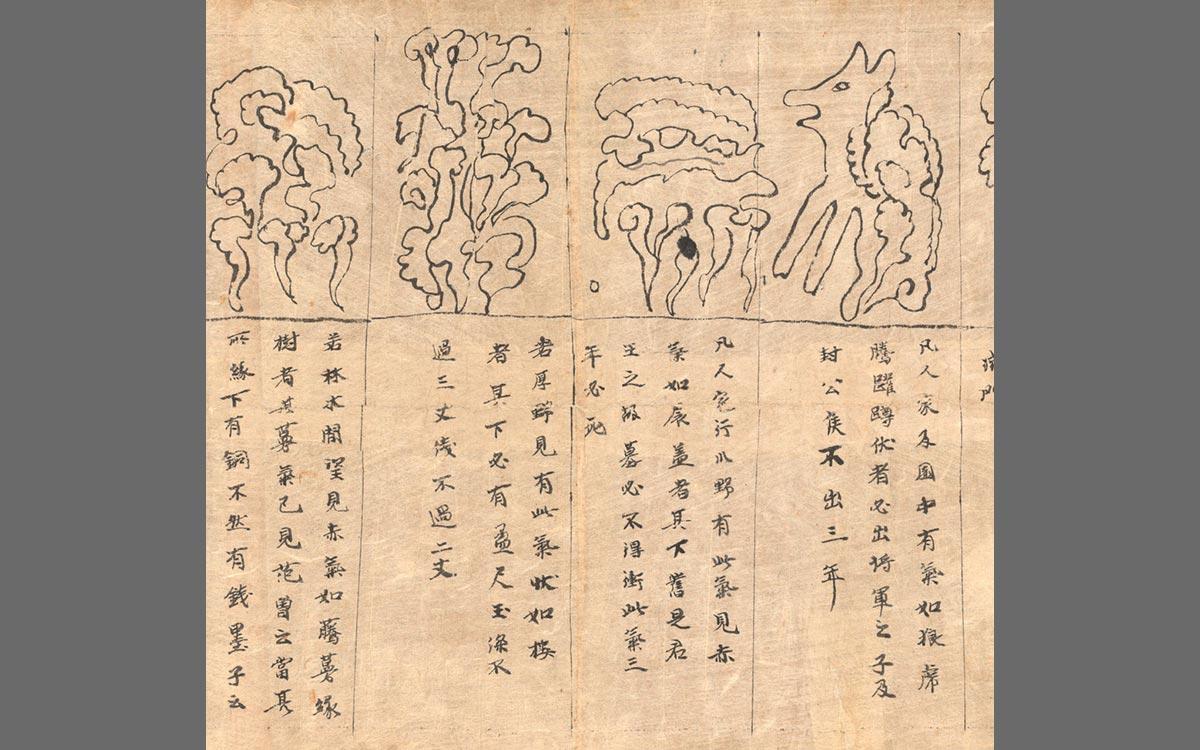 凡人家及園中有氣如狼虎
騰躍蹲伏者必出將軍之子及
封公侯不出三年
凡人行川野有此氣見赤
氣如辰蓋者其下舊是君
王之墓必不得衝此氣三
年必死
若厚野見有此氣狀如樓
者其下必有盈尺玉深不
過三丈淺不過二丈
若林木間望見赤氣如藤蔓緣
樹者其蔓氣已見范曾云當其
所緣下有銅不然有錢墨子云